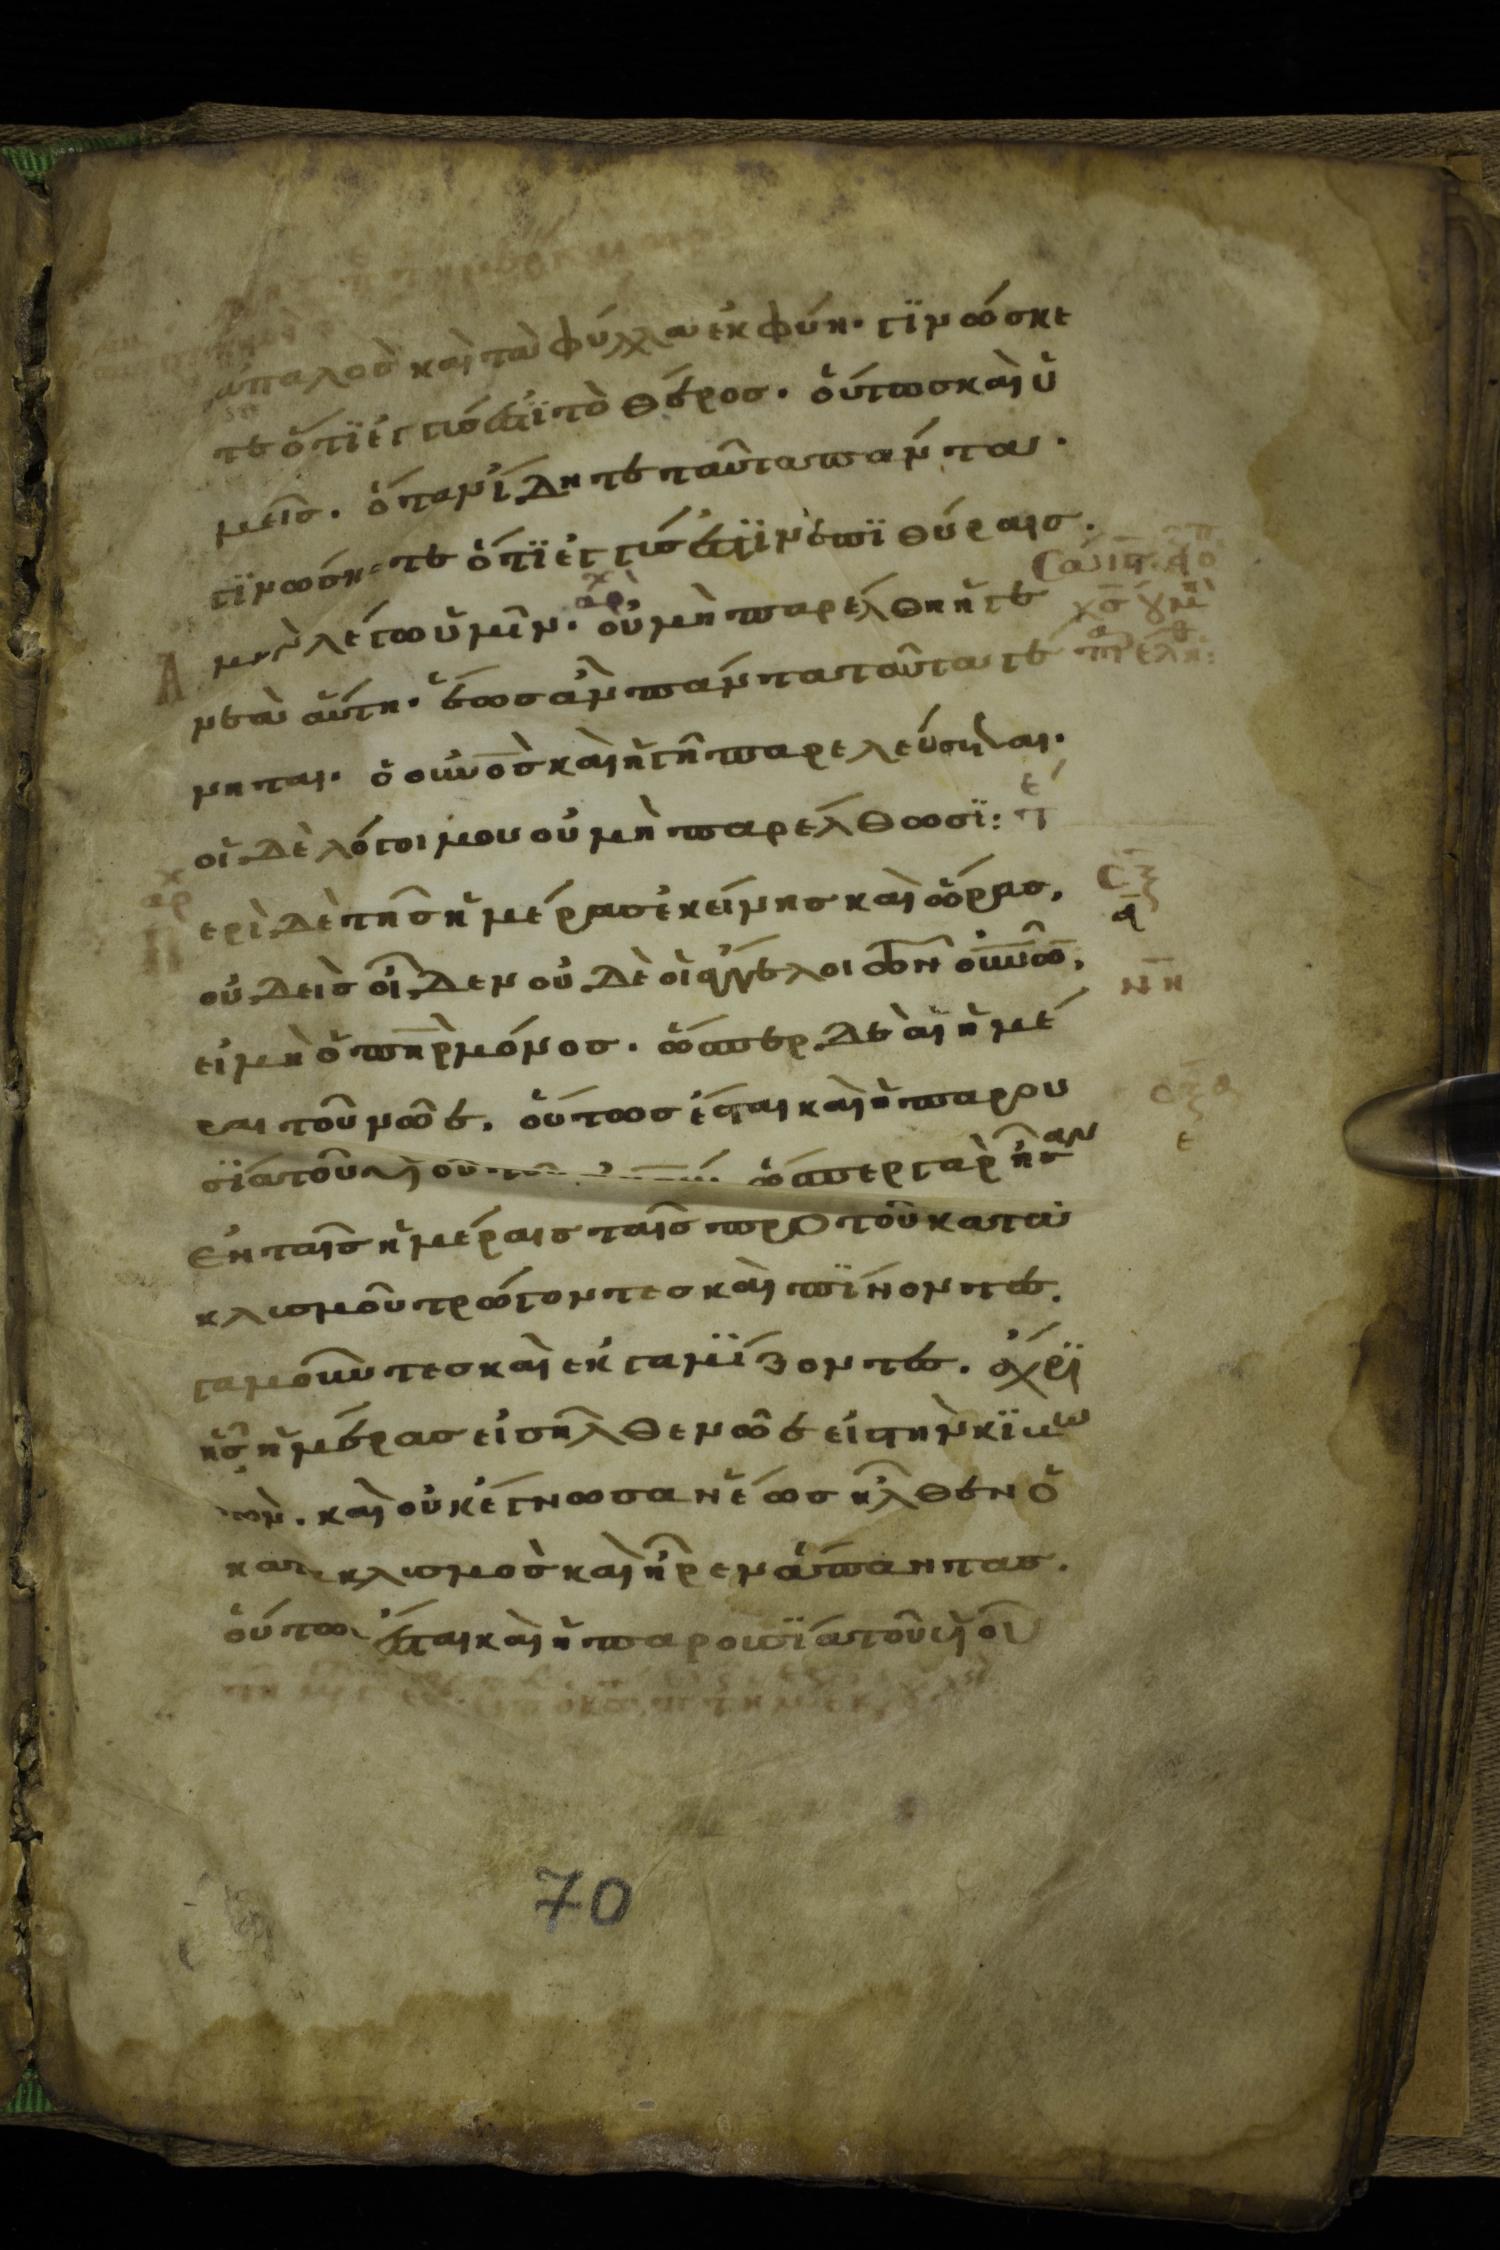 ἁπαλὸσ καὶ τὰ φύλλα ἐκφύη· γϊνώσκε
τε ὅτϊ ἐγγύσ ἐστϊ τὸ θέροσ· οὕτωσ καὶ ὑ
μεῖσ· ὅταν ἴδητε ταῦτα πάντα·
γϊνώσκετε ὅτϊ ἐγγύσ ἐστϊν ἐπϊ θύραισ·
μὴν λέγω ὑμῖν· οὐ μὴ παρέλθη ἡ γε
νεὰ αὕτη· ἕωσ ἂν πάντα ταῦτα γέ
νηται· ὁ οὐνοσ καὶ ἡ γῆ παρελεύσεται·
οἱ δὲ λόγοι μου οὐ μὴ παρέλθωσϊ:
ερὶ δὲ τῆσ ἡμέρασ ἐκείνησ καὶ ὥρασ,
οὐδεὶσ οἶδεν οὐδὲ οἱ ἄγγελοι τῶν οὐνῶν,
εἰ μὴ ὁ πηρ μόνοσ· ὥσπερ δὲ αἱ ἡμέ
ραι τοῦ νῶε, οὕτωσ ἔσται καὶ ἡ παρου
σΐα τοῦ υἱοῦ ὥσπερ γὰρ ἦσαν
ἐν ταῖσ ἡμέραισ ταῖσ πρὸ τοῦ κατα
κλισμοῦ τρώγοντεσ καὶ πϊνοντεσ,
γαμοῦντεσ καὶ ἐκγαμΐζοντεσ· ἄχρϊ
ἧσ ἡμέρασ εἰσῆλθε νῶε εἰσ τὴν κϊβω
τὸν· καὶ οὐκ ἔγνωσαν ἕωσ ἦλθεν ὁ
κατακλισμὸσ καὶ ἦρεν ἅπαντασ·
οὕτωσ ἔσται καὶ ἡ παρουσϊα τοῦ υἱοῦ
70